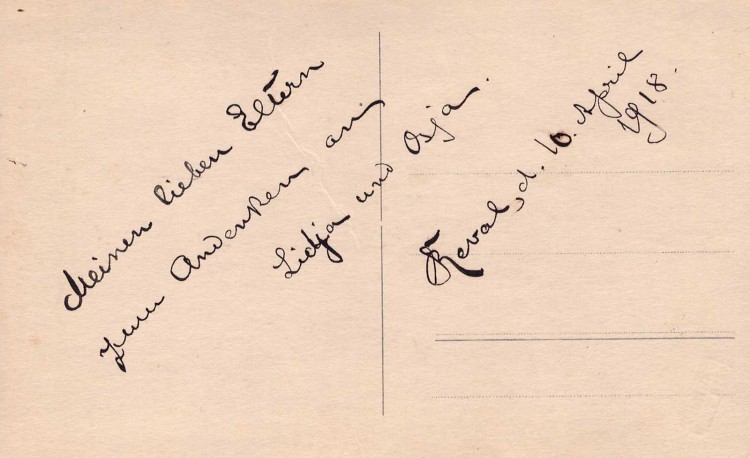 Meinen lieben Eltern
zum Andenken an
Lidja und Osja.
Reval, d. 10. April
1918.